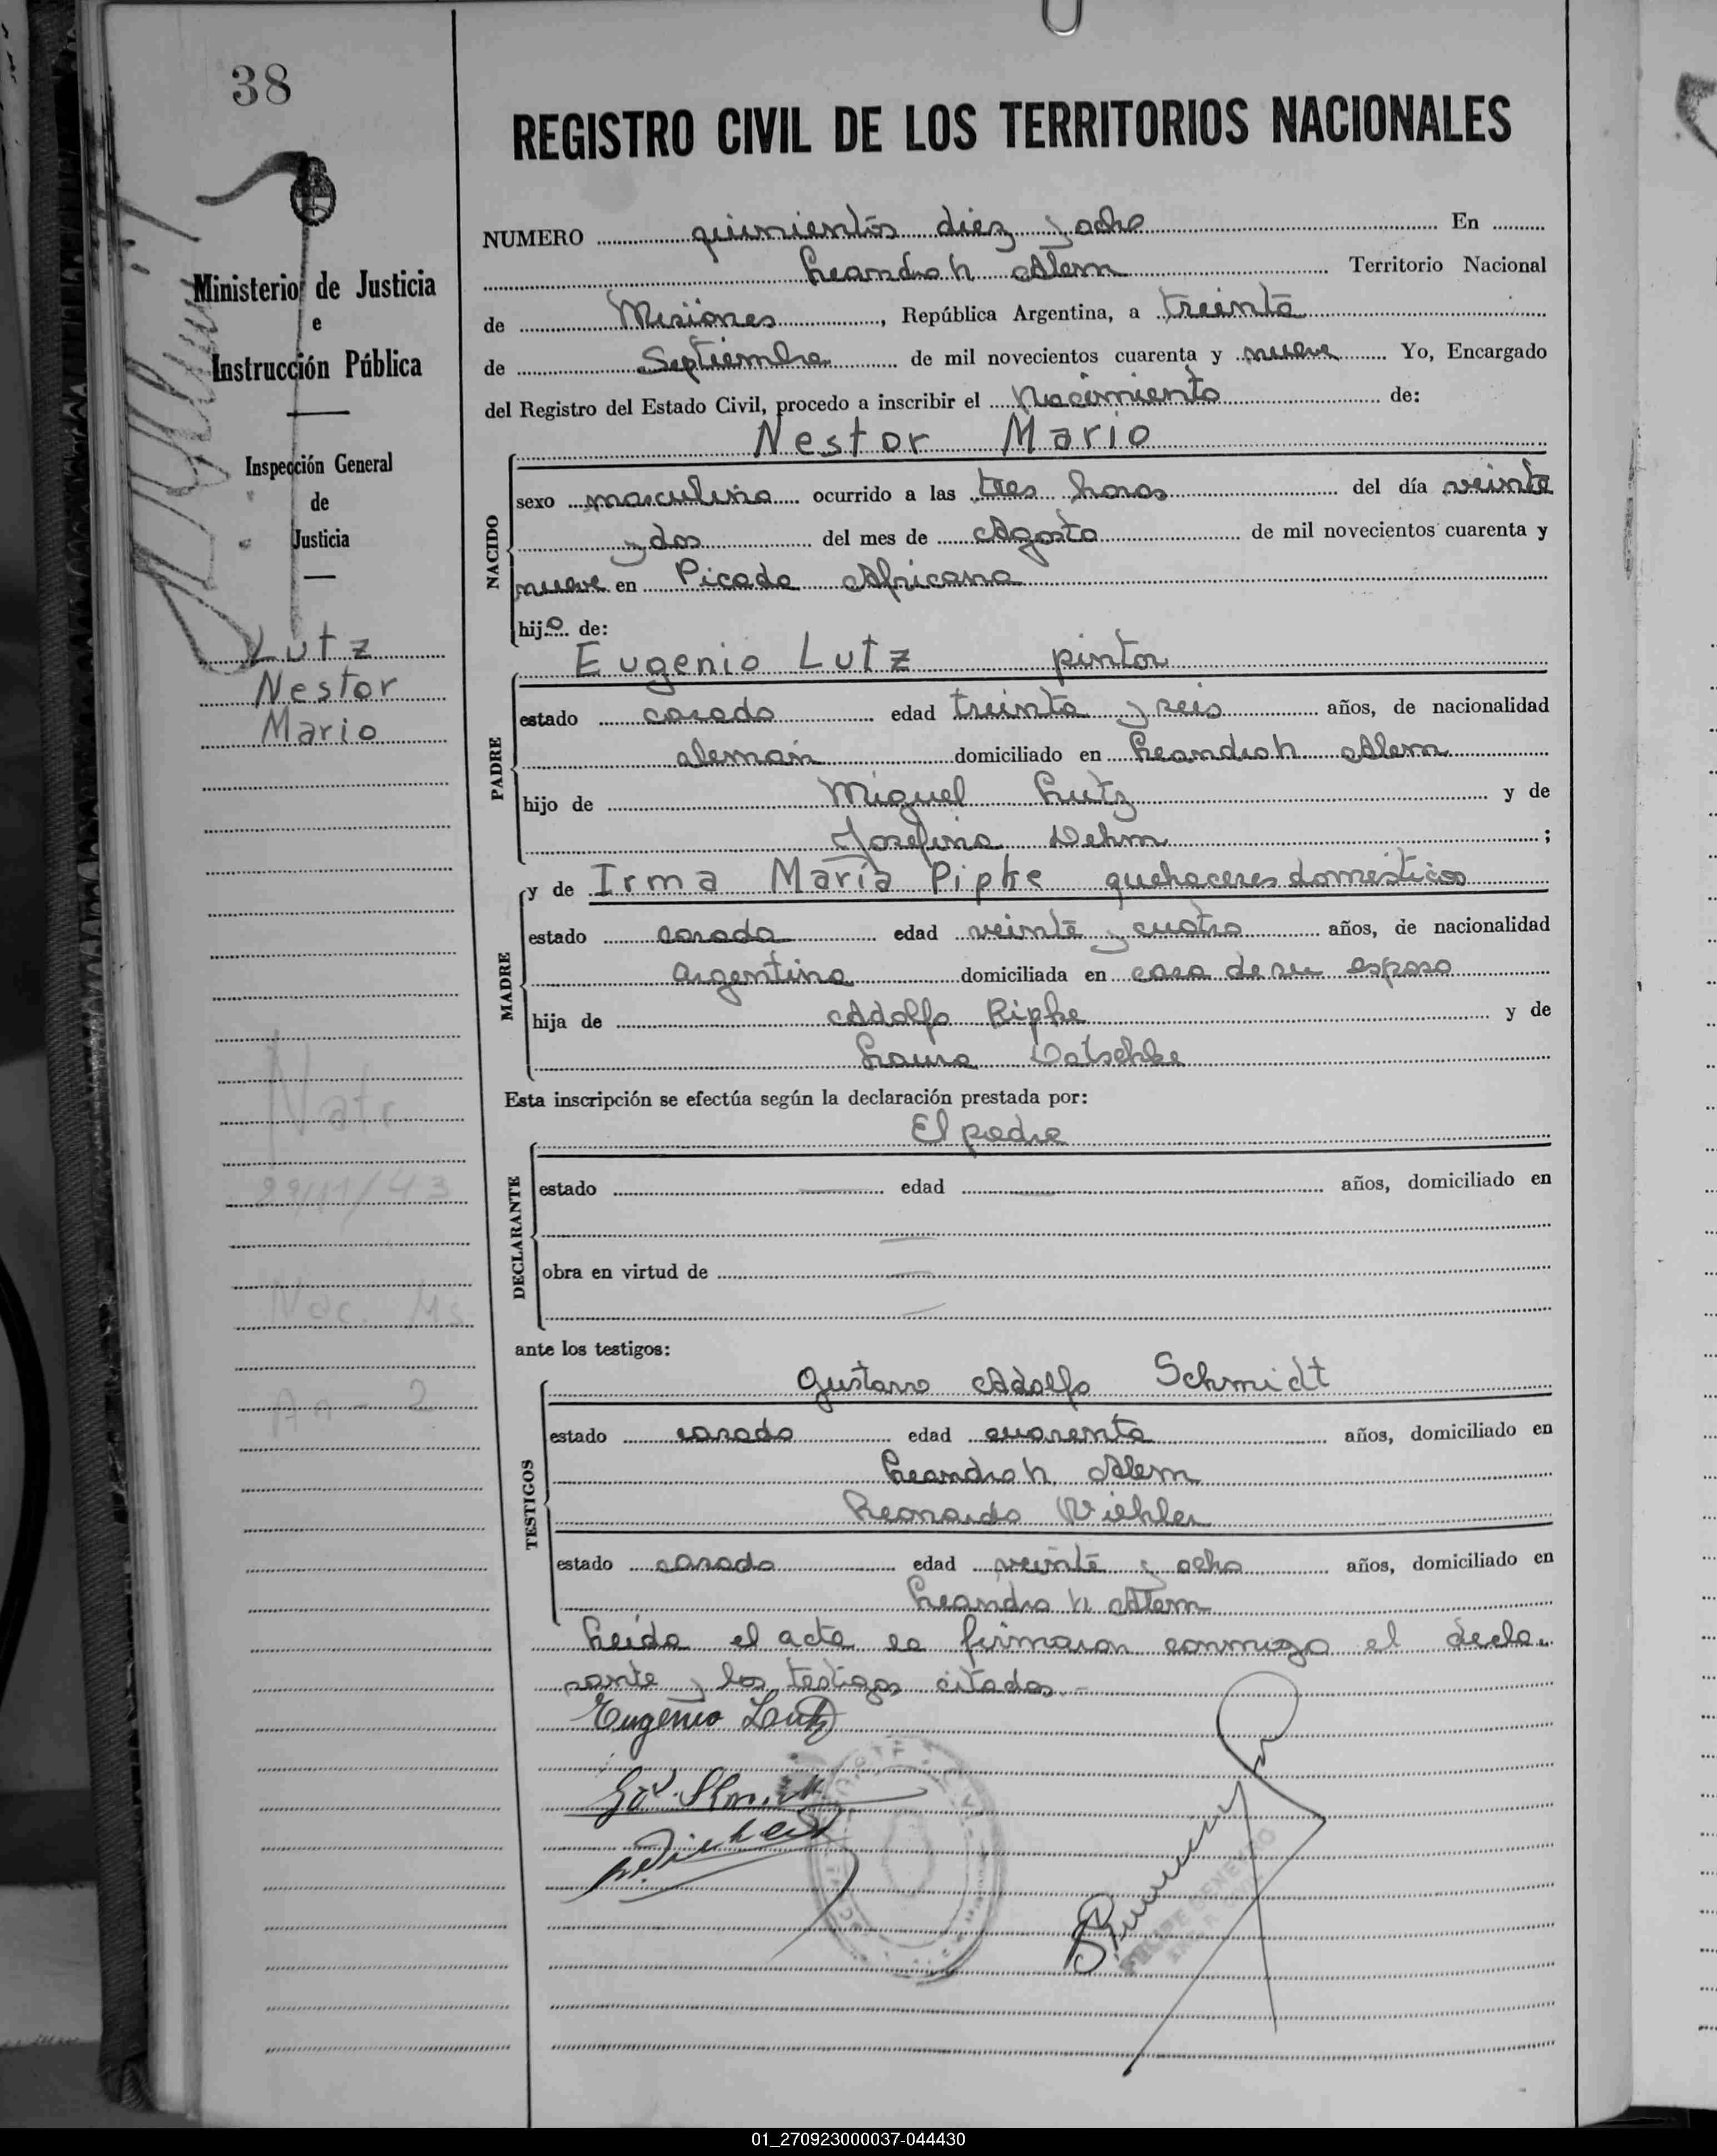 38
REGISTRO CIVIL DE LOS TERRITORIOS NACIONALES
Ministerio de Justicia
e
Instrucción Pública
Inspección General
de
Justicia
Lutz
Nestor
Mario
Natr.
29/11/43
Nac. Ms
An - 2
NUMERO quinientos diez y ocho En
Leandro N. Alem Territorio Nacional
de Misiones, República Argentina, a treinta
de Septiembre de mil novecientos cuarenta y nueve Yo, Encargado
del Registro del Estado Civil, procedo a inscribir el Nacimiento de:
Nestor Mario
NACIDO
sexo masculino ocurrido a las tres horas del día veinte
y dos del mes de Agosto de mil novecientos cuarenta y
nueve en Picada Africana
hijo de:
Eugenio Lutz pintor
PADRE
estado casado edad treinta y seis años, de nacionalidad
alemán domiciliado en Leandro N. Alem
hijo de Miguel Lutz y de
Josefina Dehm;
MADRE
y de Irma María Pipke quehaceres domésticos
estado casada edad veinte y cuatro años, de nacionalidad
Argentina domiciliada en casa de su esposo
hija de Adolfo Pipke y de
Laura
Esta inscripción se efectúa según la declaración prestada por:
El padre
DECLARANTE
estado edad años, domiciliado en
obra en virtud de
ante los testigos:
TESTIGOS
Gustavo Adolfo Schmidt
estado casado edad cuarenta años, domiciliado en
Leandro N. Alem
Leonardo Wiehler
estado casado edad veinte y ocho años, domiciliado en
Leandro N. Alem
Leida el acta la firmaron conmigo el decla-
rante y los testigos citados.-
Eugenio Lutz
01_270923000037-044430